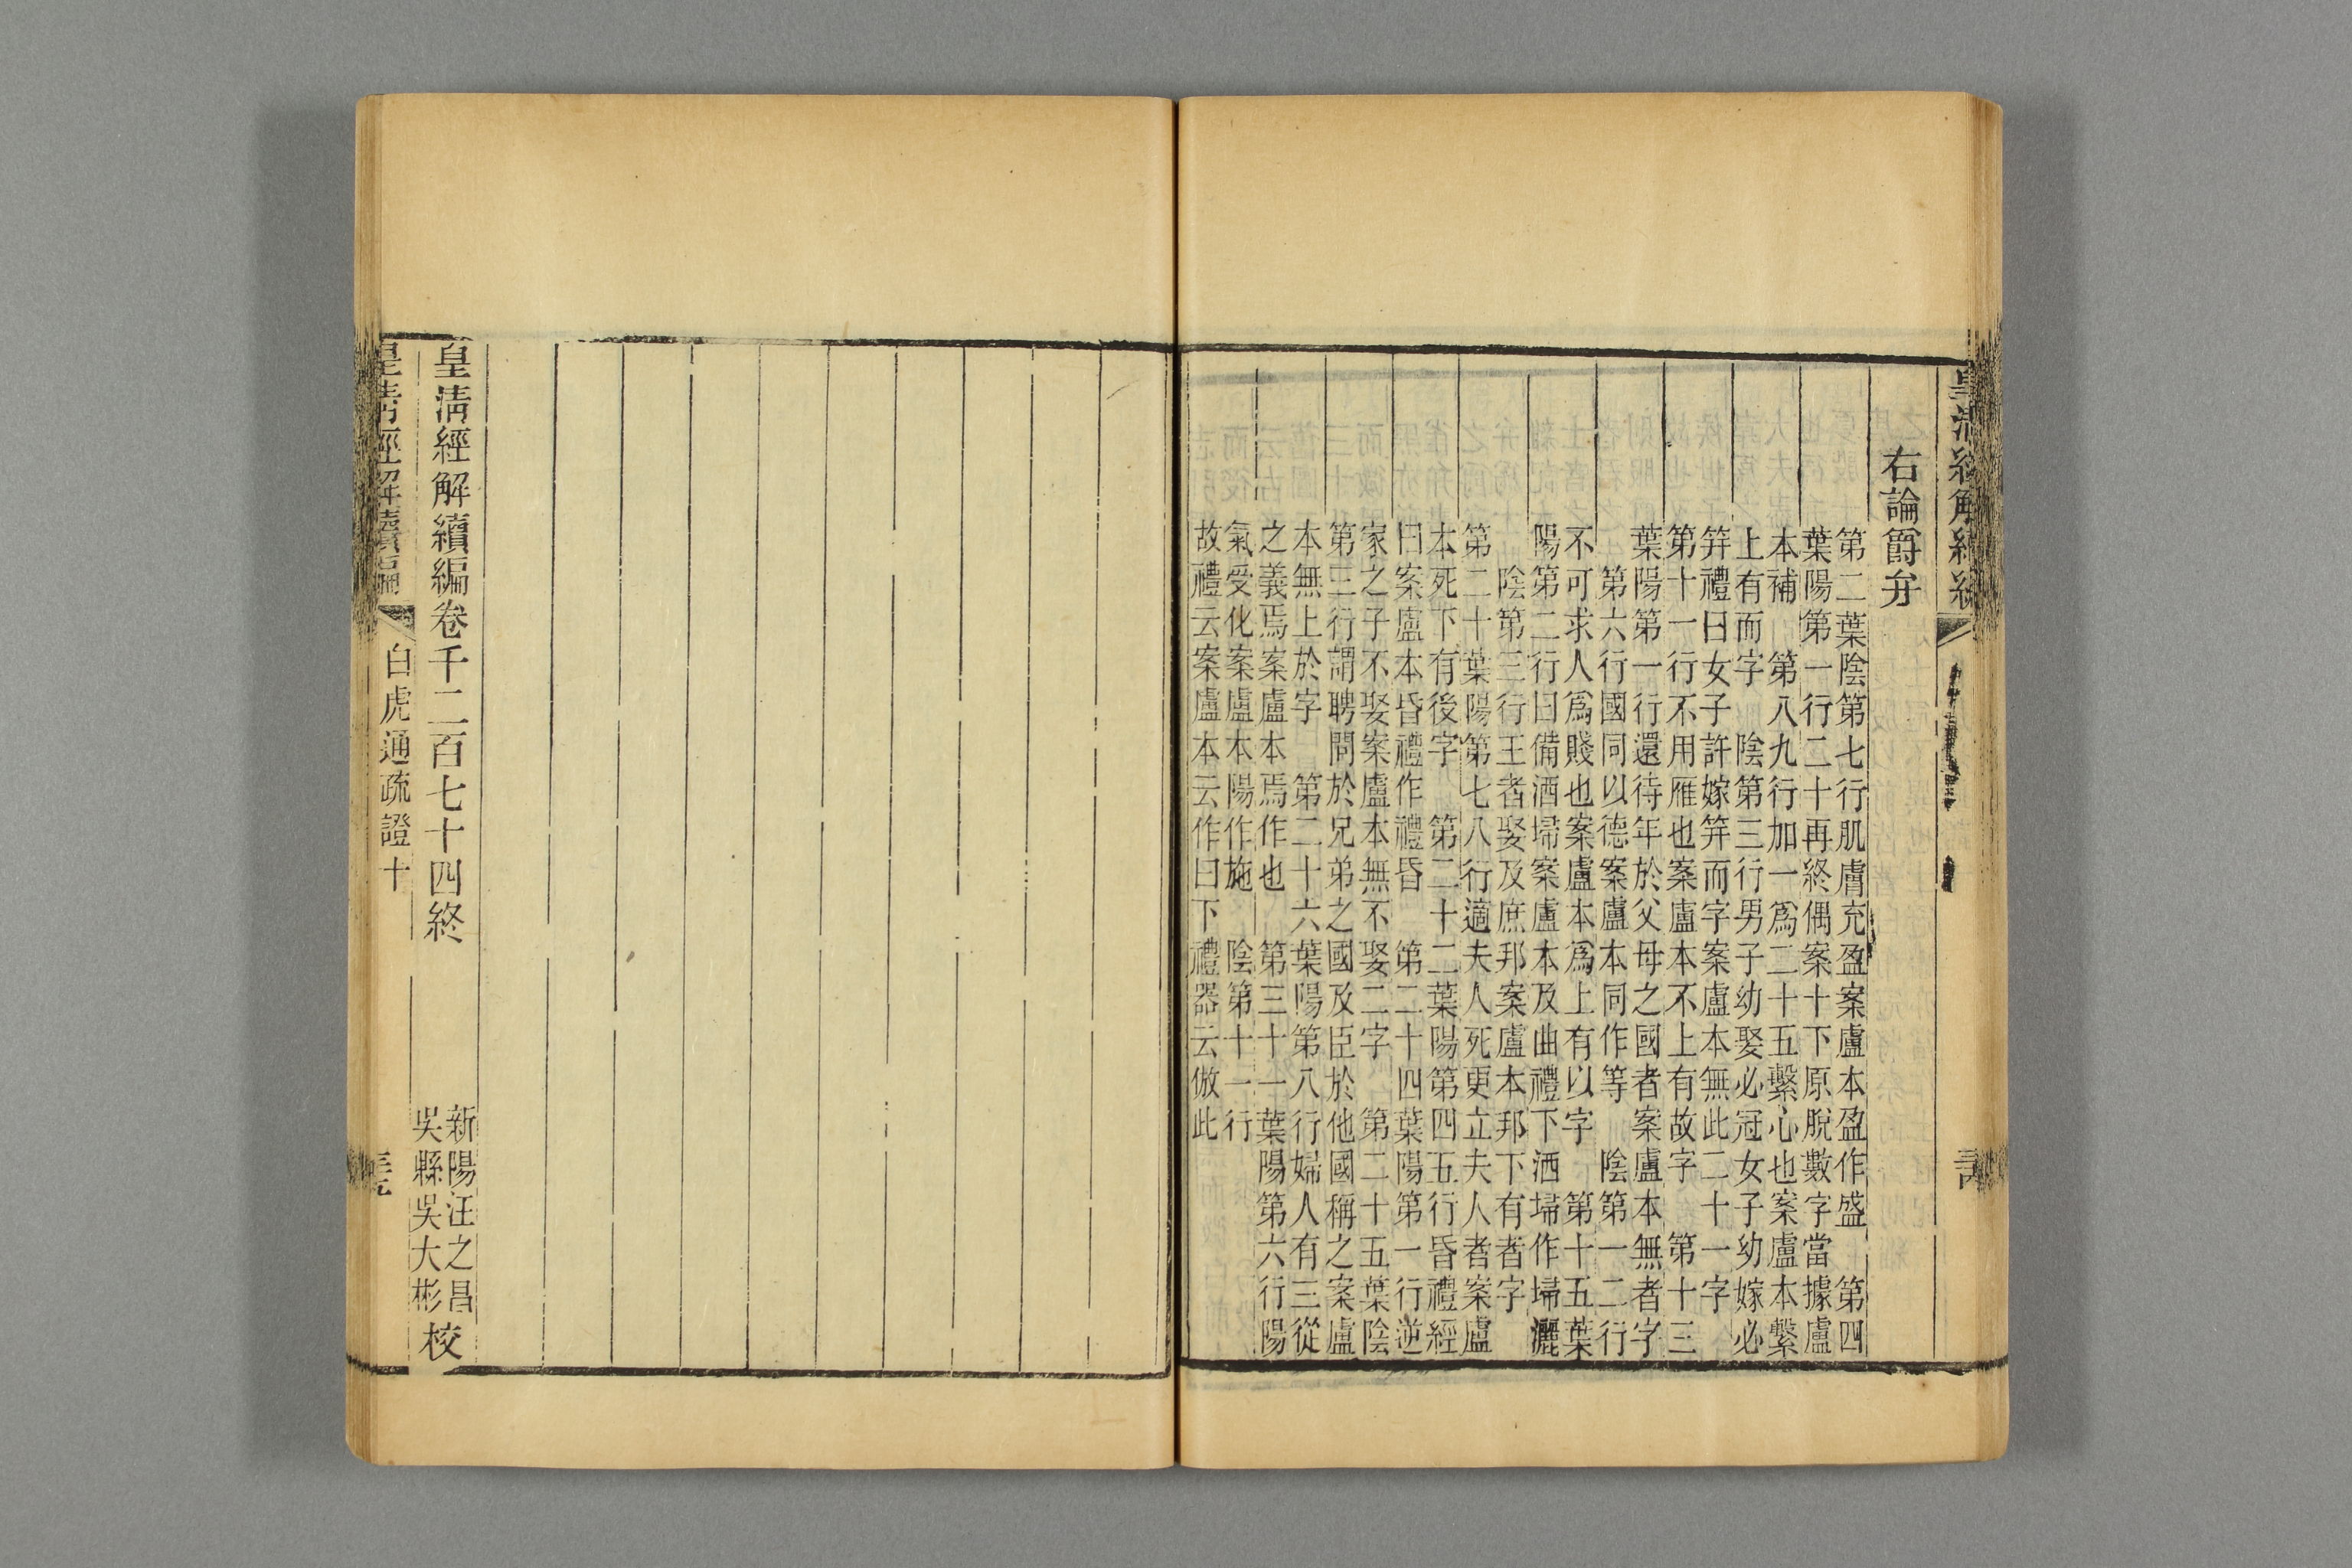 皇清經解續編
右論爵弁
第二葉陰第七行肌膚充盈案盧本盈作盛　第四
葉陽第一行二十再終偶案十下原脫數字當據盧
本補　第八九行加一爲二十五繫心也案盧本繫
上有而字　陰第三行男子幼娶必冠女子幼嫁必
笄禮曰女子許嫁笄而字案盧本無此二十一字
第十一行不用雁也案盧本不上有故字　第十三
葉陽第一行還待年於父母之國者案盧本無者字
第六行國同以德案盧本同作等　陰第一二行
不可求人爲賤也案盧本爲上有以字　第十五葉
陽第二行曰備洒埽案盧本及曲禮下洒埽作埽灑
陰第三行王者娶及庶邦案盧本邦下有者字
第二十葉陽第七八行適夫人死更立夫人者案盧
本死下有後字　第二十二葉陽第四五行昏禮經
曰案盧本昏禮作禮昏　第二十四葉陽第一行逆
家之子不娶案盧本無不娶二字　第二十五葉陰
第三行謂聘問於兄弟之國及臣於他國稱之案盧
本無上於字　第二十六葉陽第八行婦人有三從
之義焉案盧本焉作也　第三十一葉陽第六行陽
氣受化案盧本陽作施　陰第十一行
故禮云案盧本云作曰下禮器云倣此
皇清經解續編卷千二百七十四終
新陽汪之昌
吳縣吳大彬
校
皇清經解續編
白虎通疏證十